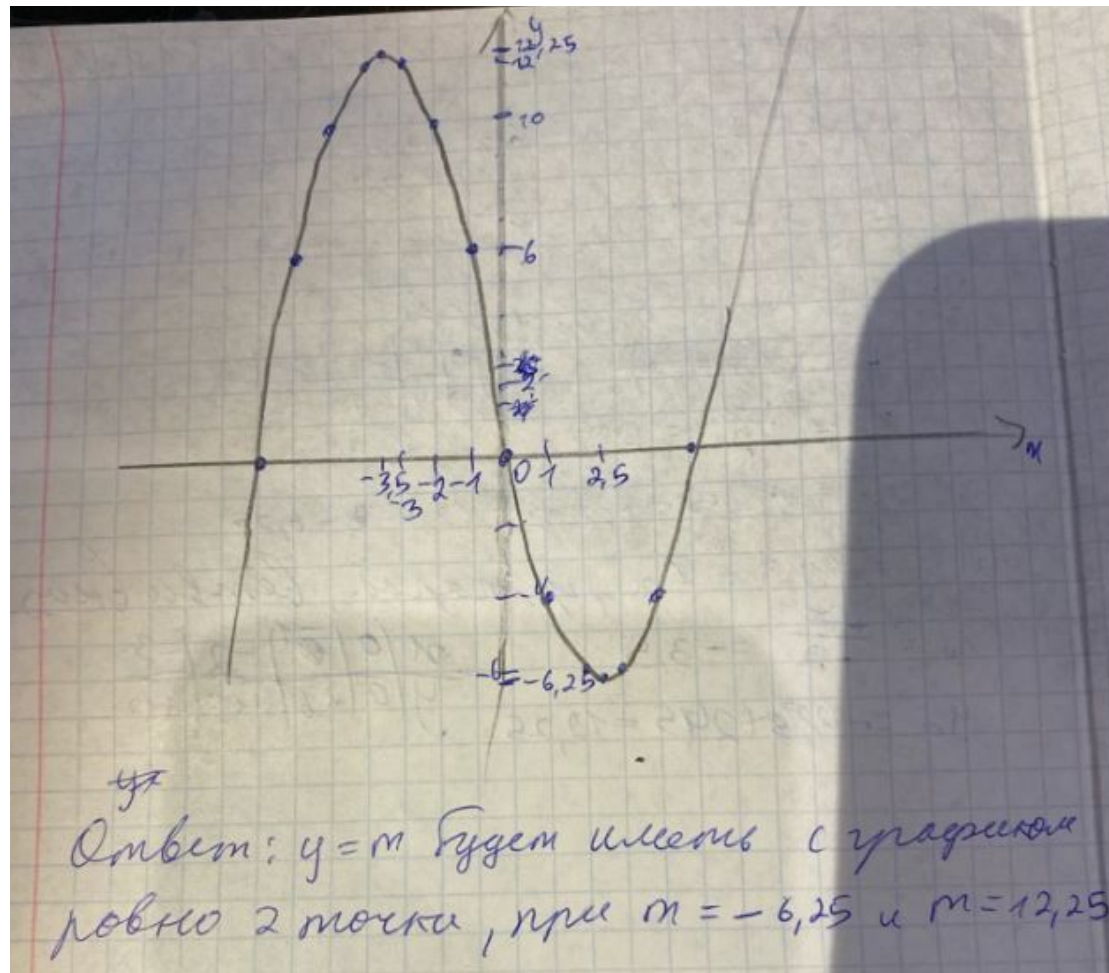 y
12,25
12
10
6
2
-3,5 -2 -1 0 1 2,5 x
-3
-6 -6,25
Ответ: y = m будет иметь с графиком
ровно 2 точки, при m = -6,25 и m = 12,25